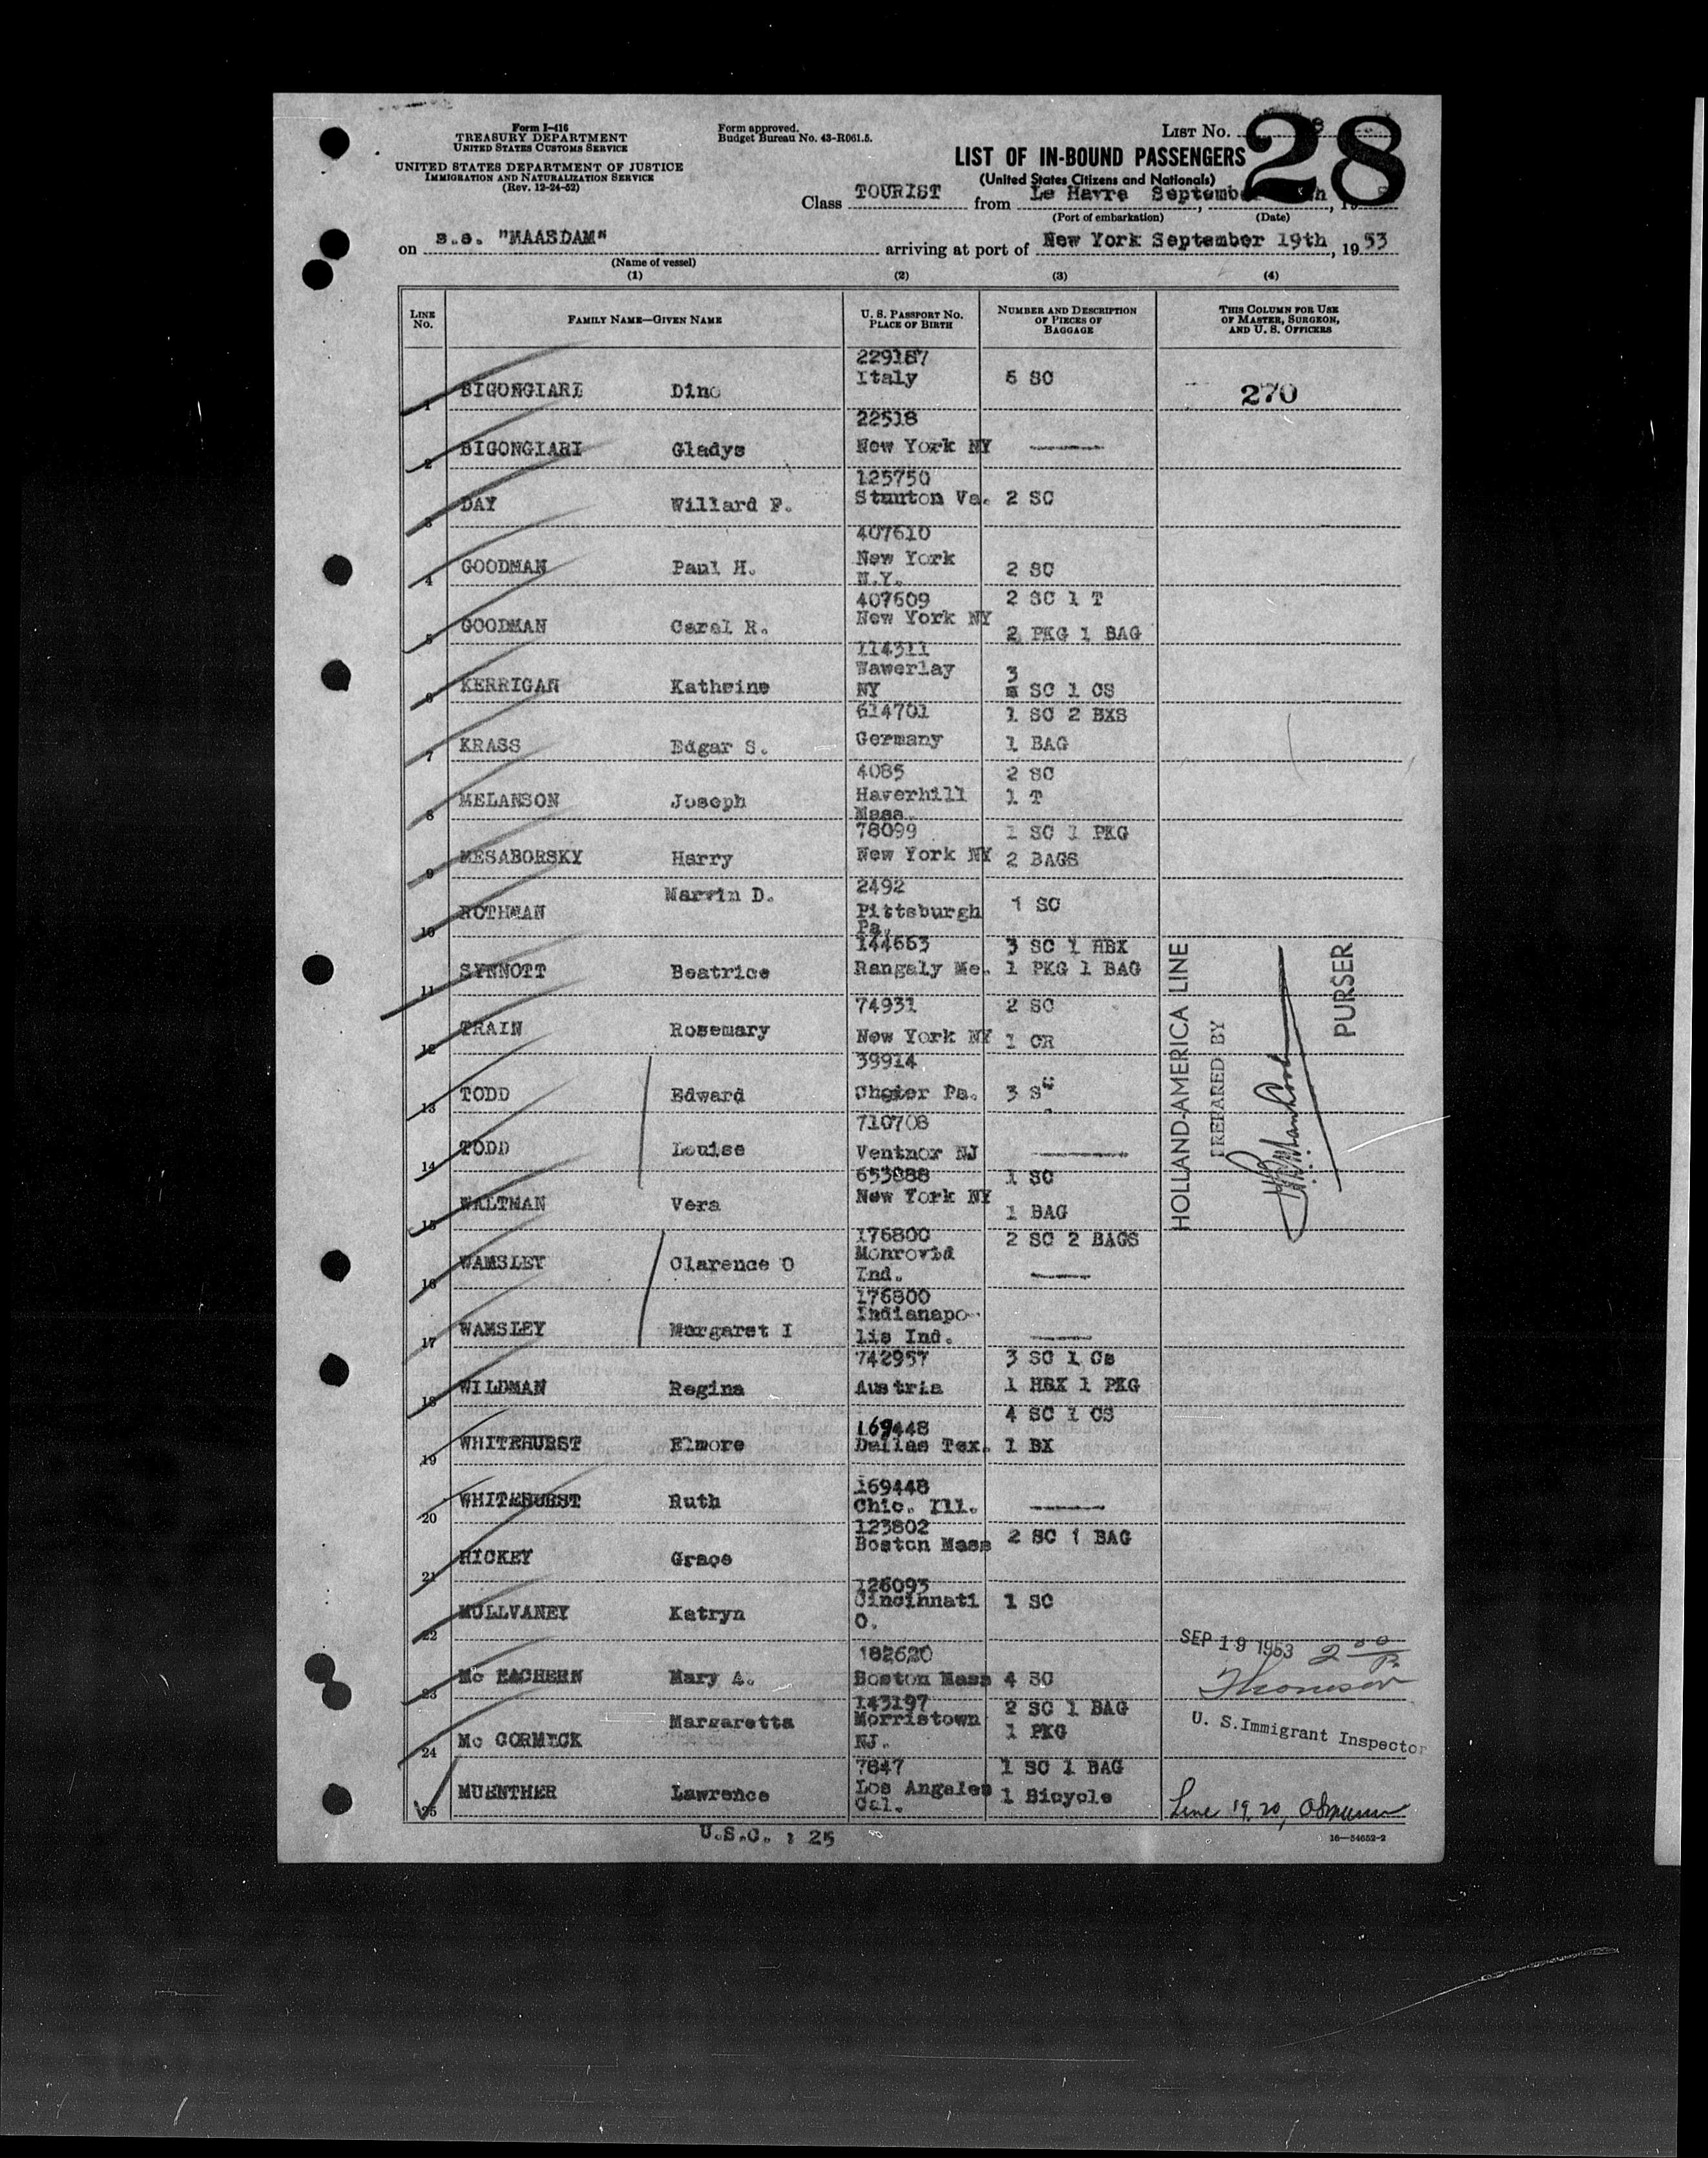 Form I-416
TREASURY DEPARTMENT
UNITED STATES CUSTOMS SERVICE
UNITED STATES DEPARTMENT OF JUSTICE
IMMIGRATION AND NATURALIZATION SERVICE
(Rev. 12-24-52)
Form approved.
Budget Bureau No. 43-R061.5.
LIST NO.
28
LIST OF IN-BOUND PASSENGERS
(United States Citizens and Nationals)
Class TOURIST from Le Havre September
(Port of embarkation) (Date)
on s.s. "MAASDAM" arriving at port of New York September 19th, 1953
(Name of vessel)
(1) (2) (3) (4)
LINE NO. FAMILY NAME—GIVEN NAME U. S. PASSPORT NO. PLACE OF BIRTH NUMBER AND DESCRIPTION OF PIECES OF BAGGAGE THIS COLUMN FOR USE OF MASTER, SURGEON, AND U. S. OFFICERS
229187
1 BIGONGIARI Dino Italy 5 SC 270
22518
2 BIGONGIARI Gladys New York NY
125750
3 DAY Willard F. Stunton Va. 2 SC
407610
4 GOODMAN Paul H. New York N.Y. 2 SC
407609 2 SC 1 T
5 GOODMAN Carel R. New York NY 2 PKG 1 BAG
114311
6 KERRIGAN Katheine Wawerlay NY 3 SC 1 CS
614701 1 SC 2 BXS
7 KRASS Edgar S. Germany 1 BAG
4085 2 SC
8 MELANSON Joseph Haverhill Mass. 1 T
78099 1 SC 1 PKG
9 MESABORSKY Harry New York NY 2 BAGS
2492
10 ROTHMAN Marvin D. Pittsburgh Pa. 1 SC
144663 3 SC 1 HBX
11 SYNNOTT Beatrice Rangaly Me. 1 PKG 1 BAG
74931 2 SC
12 TRAIN Rosemary New York NY 1 CR
39914
13 TODD Edward Chester Pa. 3 SC
710708
14 TODD Louise Ventnor NJ
653088 1 SC
15 WALTMAN Vera New York NY 1 BAG
176800 2 SC 2 BAGS
16 WAMSLEY Clarence O Monrovid Ind.
176800
17 WAMSLEY Margaret I Indianapolis Ind.
742957 3 SC 1 Cs
18 WILDMAN Regina Austria 1 HBX 1 PKG
169448 4 SC 1 CS
19 WHITEHURST Elmore Dallas Tex. 1 BX
169448
20 WHITEHURST Ruth Chic. Ill.
123802
21 HICKEY Grace Boston Mass 2 SC 1 BAG
126093
22 MULLVANEY Katryn Cincinnati O. 1 SC
182620
23 Mc EACHERN Mary A. Boston Mass 4 SC
143197 2 SC 1 BAG
24 Mc CORMICK Margaretta Morristown NJ. 1 PKG
7847 1 SC 1 BAG
25 MUENTHER Lawrence Los Angales Cal. 1 Bicycle
HOLLAND-AMERICA LINE
PREPARED BY
PURSER
SEP 19 1953 2 00 P.
Thomson
U. S. Immigrant Inspector
Line 19, 20,
U.S.C. : 25
16—54652-2